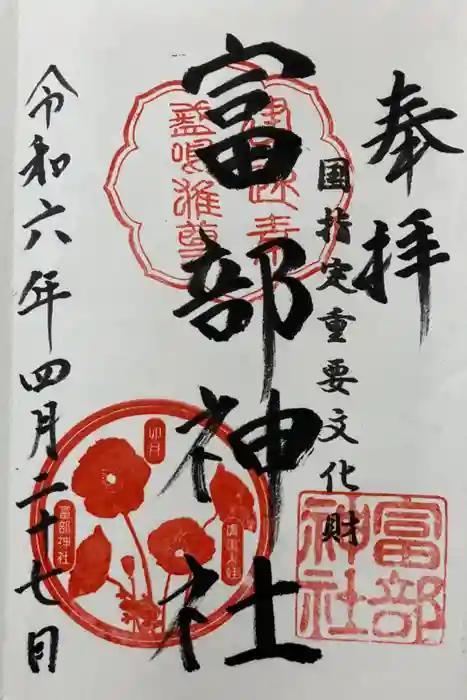 奉拝
国指定重要文化財
富部神社
令和六年四月二十七日
富部神社
卯月
富部神社